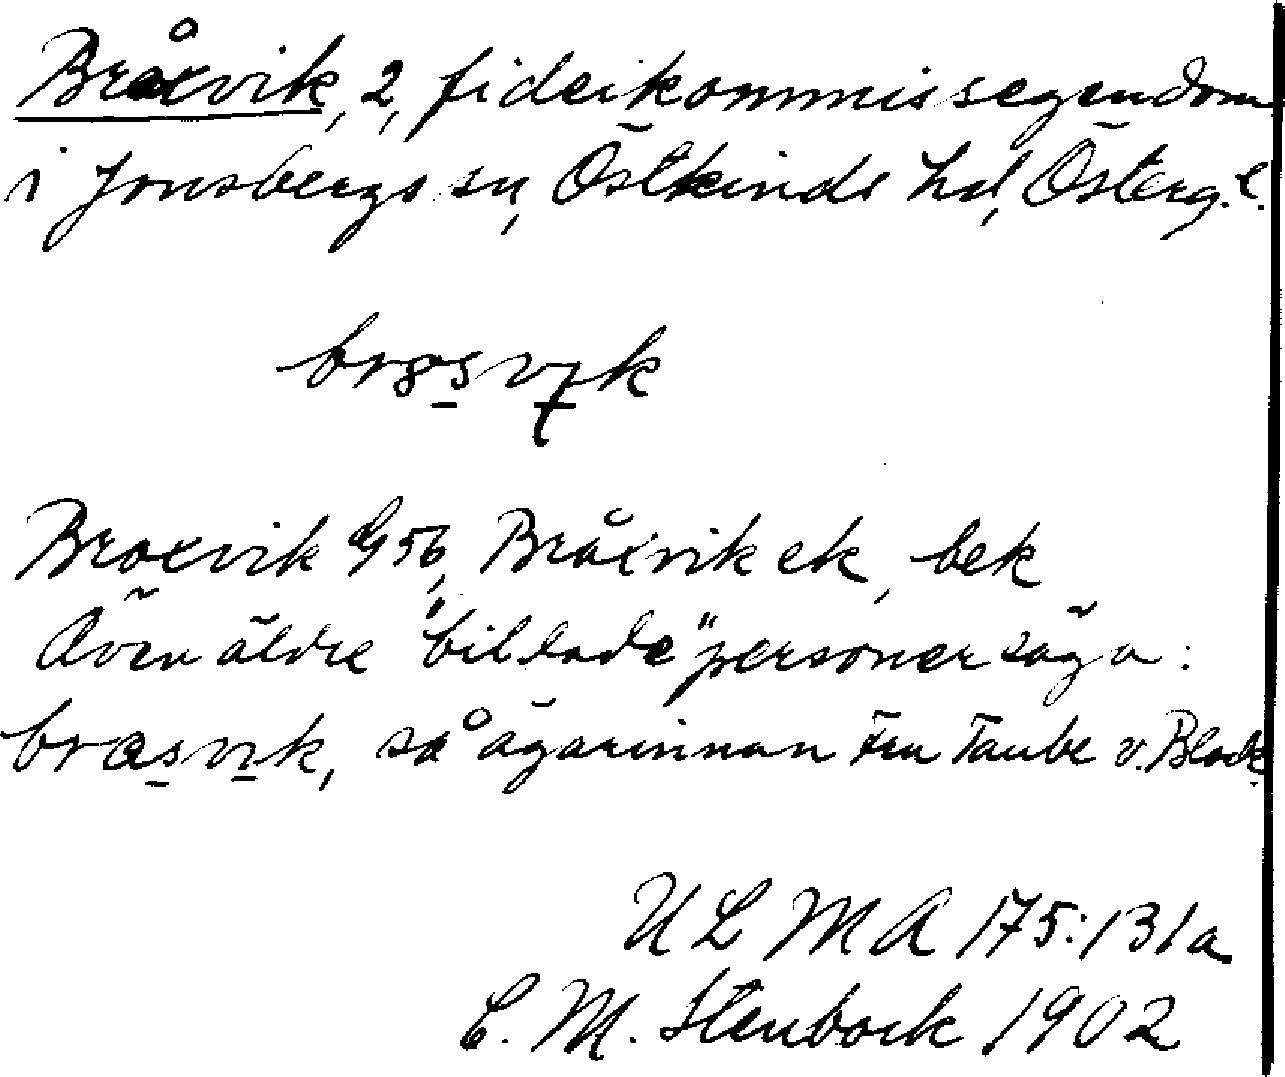 Bråxvik, 2, fideikommissegendom
i Jonsbergs sn, Östkinds hd, Österg. l.
br8svɪk
Broxvik Gj 56, Bråxvik ek, bek
Även äldre "bildade" personer säga:
bræsvɪk, så ägarinnan Fru Taube v. Block
U L M A 175:131a
C. M. Stenbock 1902